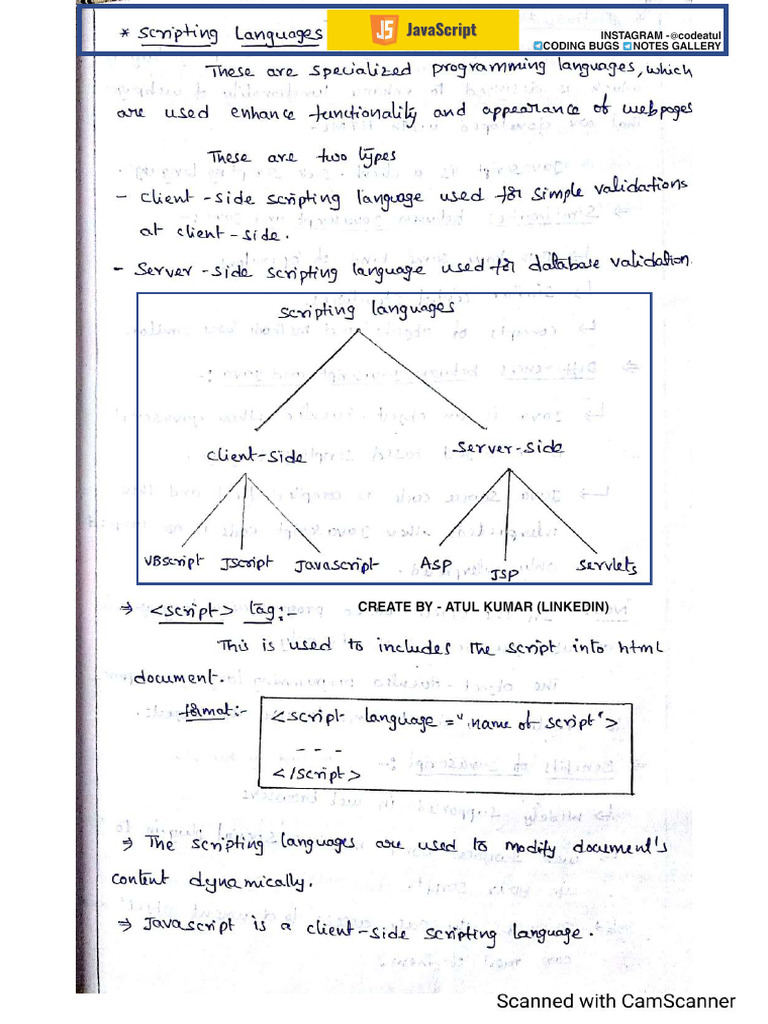 * Scripting Languages
JS JavaScript
INSTAGRAM -@codeatul
CODING BUGS NOTES GALLERY
These are specialized programming languages, which
are used enhance functionality and appearance of webpages
These are two types
- client-side scripting language used for simple validations
at client-side.
- Server-side scripting language used for database validation.
Scripting languages
client-side Server-side
VBscript Jscript Javascript ASP JSP Servlets
⇒ <script> tag:-
CREATE BY - ATUL KUMAR (LINKEDIN)
This is used to includes the script into html
document.
format:- <script language = "name of script">
- - -
</script>
⇒ The scripting languages are used to modify document's
content dynamically.
⇒ Javascript is a client-side scripting language.
Scanned with CamScanner